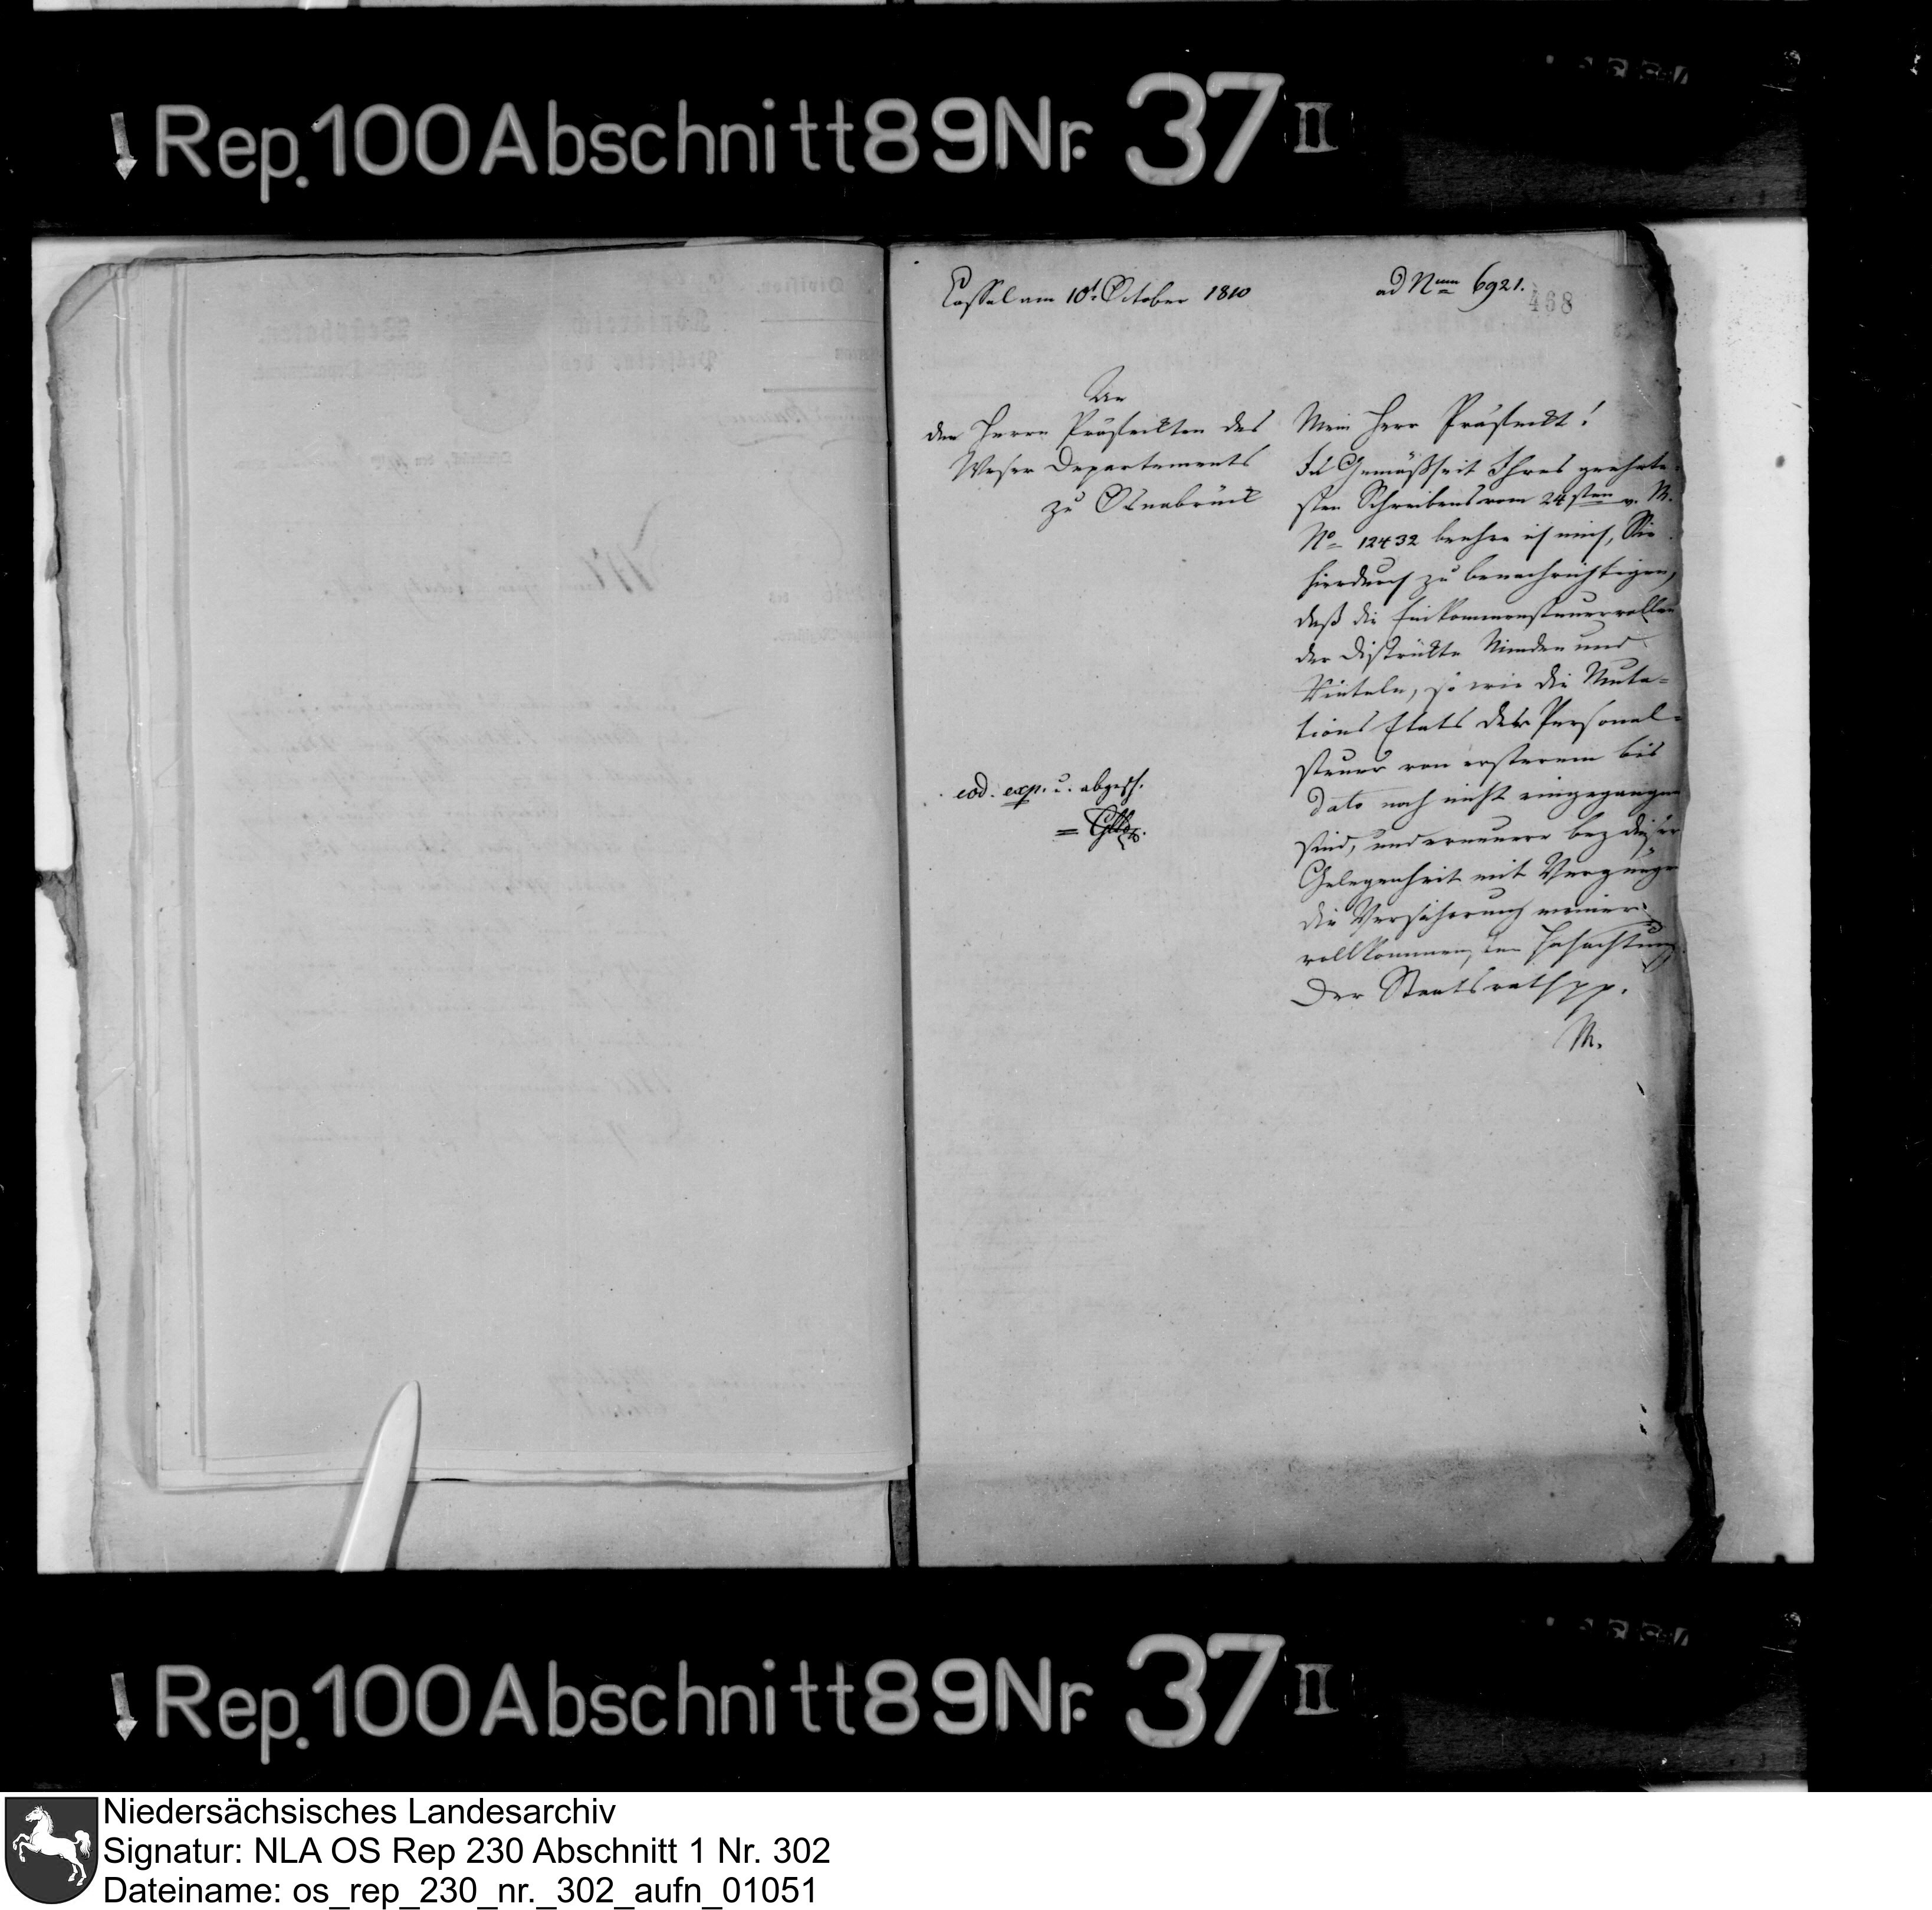 Rep. 100 Abschnitt 89 Nr. 37 II
Cassel am 10t October 1810
ad Num 6921.
468
An
den Herrn Präfeckten des
Weser Departements
zu Osnabrück
eod. exp. u. abgesch.
Mein Herr Präfeckt!
In Gemäßheit Ihres geehrte-
sten Schreibens vom 24sten v. M.
No 12432 beehre ich mich, Sie
hierdurch zu benachrichtigen,
daß die Einkommensteuerrollen
der Districkte Minden und
Rinteln, so wie die Muta-
tions Etats der Personal-
steuer von ersterem bis
dato noch nicht eingegangen
sind, und erneuere bey dieser
Gelegenheit mit Vergnüge
die Versicherung meiner
vollkommensten Hochachtung
Der Staatsrath pp.
M.
Rep. 100 Abschnitt 89 Nr. 37 II
Niedersächsisches Landesarchiv
Signatur: NLA OS Rep 230 Abschnitt 1 Nr. 302
Dateiname: os_rep_230_nr._302_aufn_01051